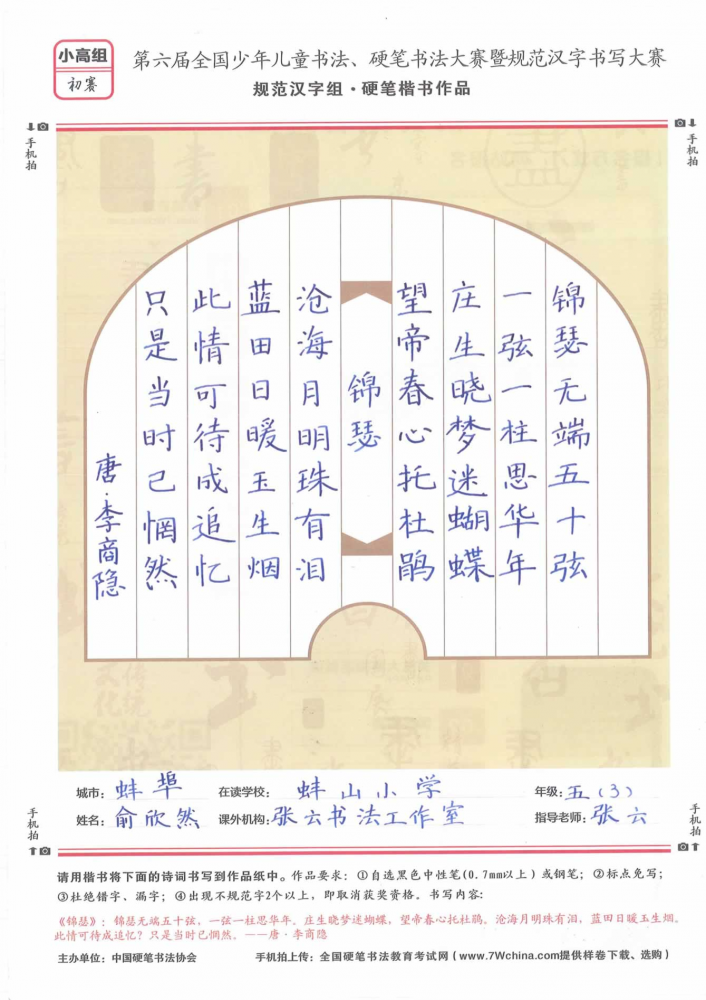 小高组
初赛
第六届全国少年儿童书法、硬笔书法大赛暨规范汉字书写大赛
规范汉字组·硬笔楷书作品
手机拍
手机拍
锦瑟无端五十弦
一弦一柱思华年
庄生晓梦迷蝴蝶
望帝春心托杜鹃
锦瑟
沧海月明珠有泪
蓝田日暖玉生烟
此情可待成追忆
只是当时已惘然
唐·李商隐
城市：蚌埠 在读学校：蚌山小学 年级：五（3）
姓名：俞欣然 课外机构：张云书法工作室 指导老师：张云
手机拍
手机拍
请用楷书将下面的诗词书写到作品纸中。作品要求：①自选黑色中性笔(0.7mm以上）或钢笔；②标点免写；
③杜绝错字、漏字；④出现不规范字2个以上，即取消获奖资格。书写内容：
《锦瑟》：锦瑟无端五十弦，一弦一柱思华年。庄生晓梦迷蝴蝶，望帝春心托杜鹃。沧海月明珠有泪，蓝田日暖玉生烟。
此情可待成追忆？只是当时已惘然。——唐·李商隐
主办单位：中国硬笔书法协会 手机拍上传：全国硬笔书法教育考试网（www.7Wchina.com提供样卷下载、选购）